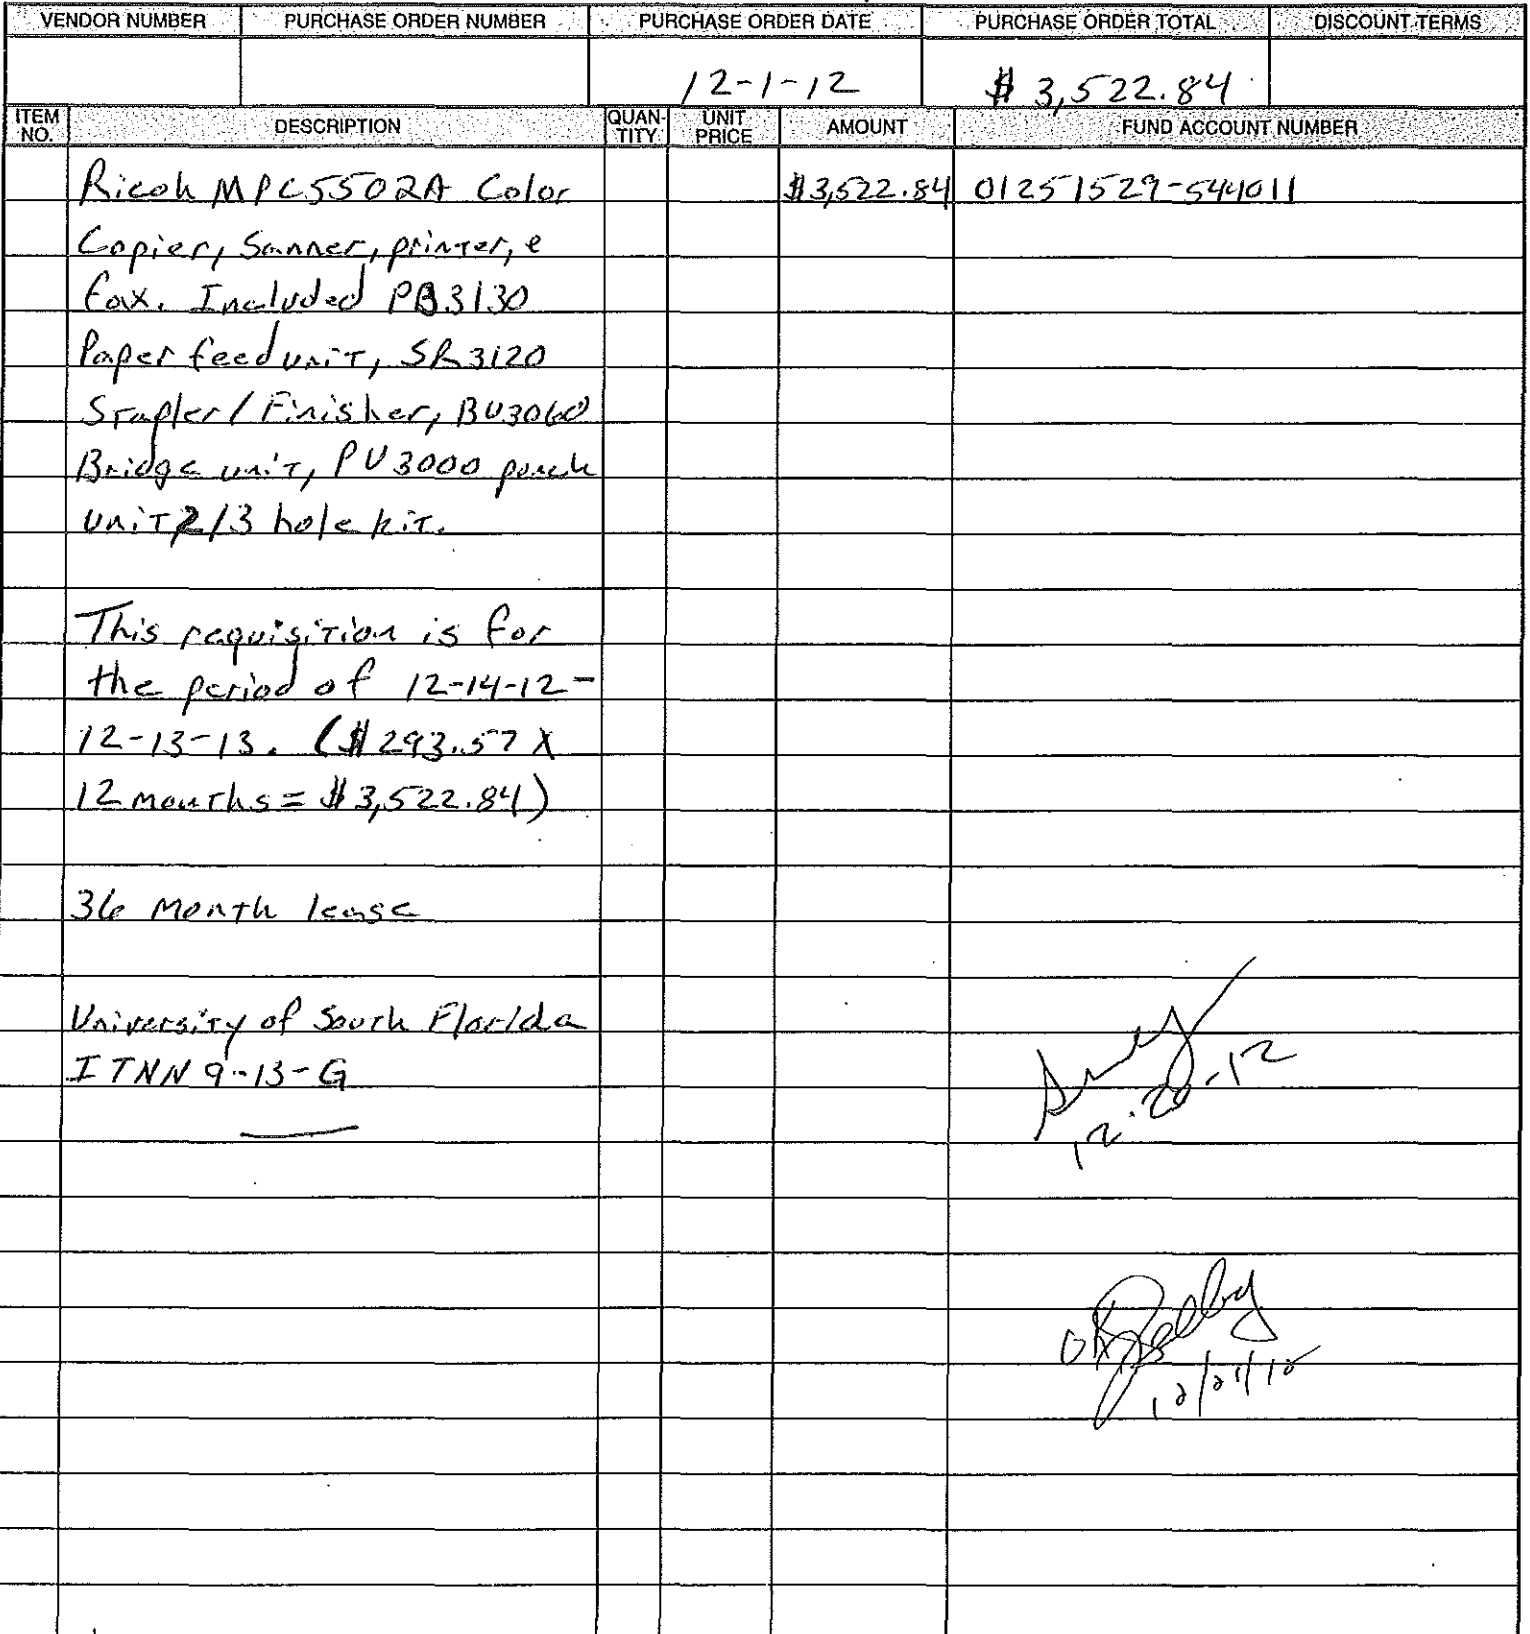 VENDOR NUMBER PURCHASE ORDER NUMBER PURCHASE ORDER DATE PURCHASE ORDER TOTAL DISCOUNT TERMS
12-1-12 $ 3,522.84
ITEM NO. DESCRIPTION QUAN-TITY UNIT PRICE AMOUNT FUND ACCOUNT NUMBER
Ricoh MPC5502A Color $3,522.84 01251529-544011
Copier, Sanner, printer, e
fax. Included PB3130
Paper feed unit, SR3120
Stapler/Finisher, BU3060
Bridge unit, PU3000 punch
unit 2/3 hole kit.
This requisition is for
the period of 12-14-12-
12-13-13. ($293.57 X
12 months = $3,522.84)
36 Month lease
University of South Florida
ITNN 9-13-G
12-20-12
OK
12/21/12